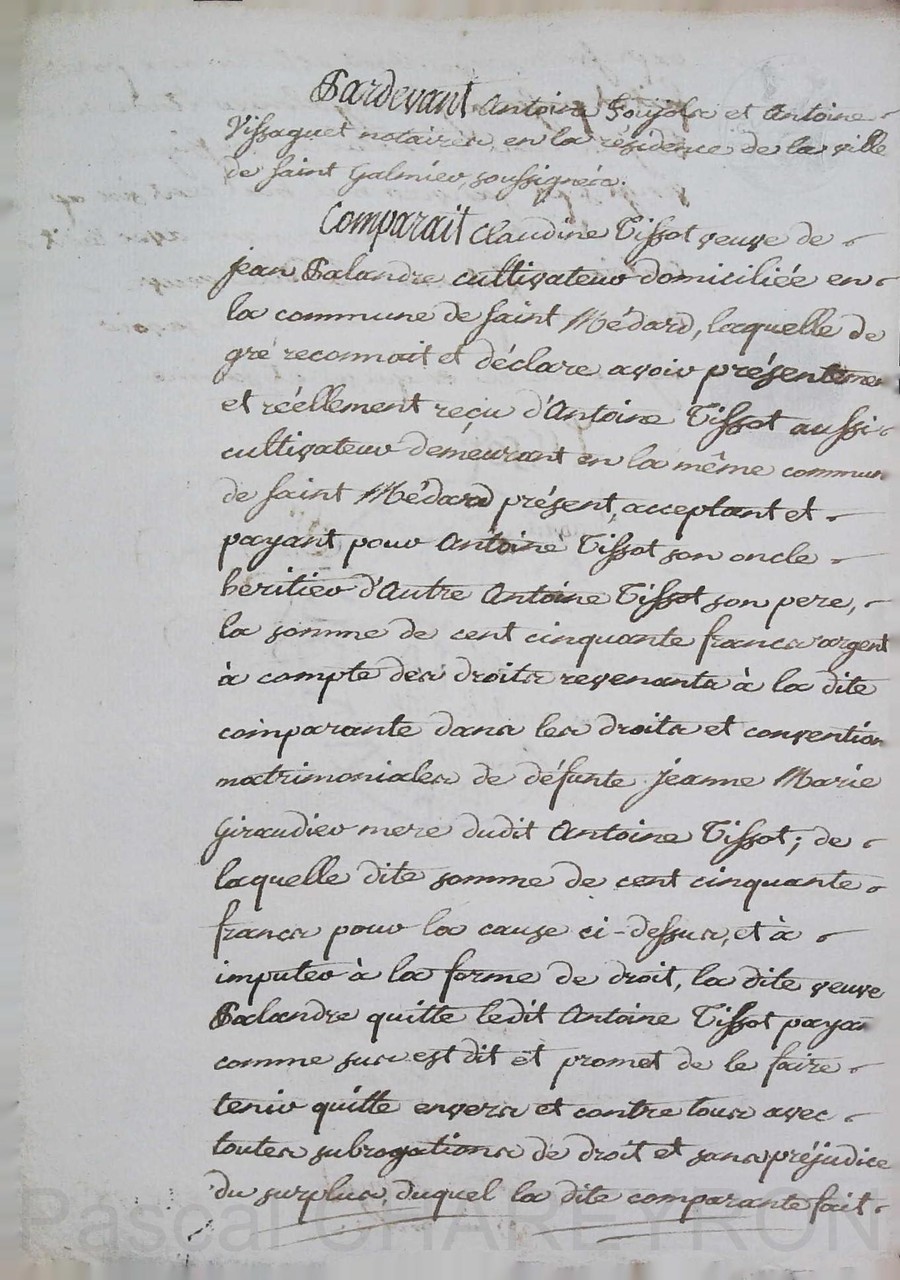 Pardevant Antoine Poujola et Antoine
Vissaguet notaires, en la résidence de la ville
de saint Galmier, soussignés.
Comparait Claudine Tissot veuve de
jean Palandre cultivateur domiciliée en
la commune de saint Médard, laquelle de
gré reconnait et déclare avoir présentemen
et réellement reçu d'Antoine Tissot aussi
cultivateur demeurant en la même commun
de saint Médard présent, acceptant et
payant pour Antoine Tissot son oncle
heritier d'Autre Antoine Tissot son pere,
la somme de cent cinquante francs argent
à compte des droits revenants à la dite
comparante dans les droits et convention
matrimoniales de défunte jeanne Marie
Giraudier mere dudit Antoine Tissot; de
laquelle dite somme de cent cinquante
francs pour la cause ci-dessus, et à
imputer à la forme de droit, la dite veuve
Palandre quitte ledit Antoine Tissot payan
comme sus est dit et promet de le faire
tenir quitte envers et contre tous avec
toutes subrogations de droit et sans préjudice
du surplus, duquel la dite comparante fait
Pascal CHAREYRON